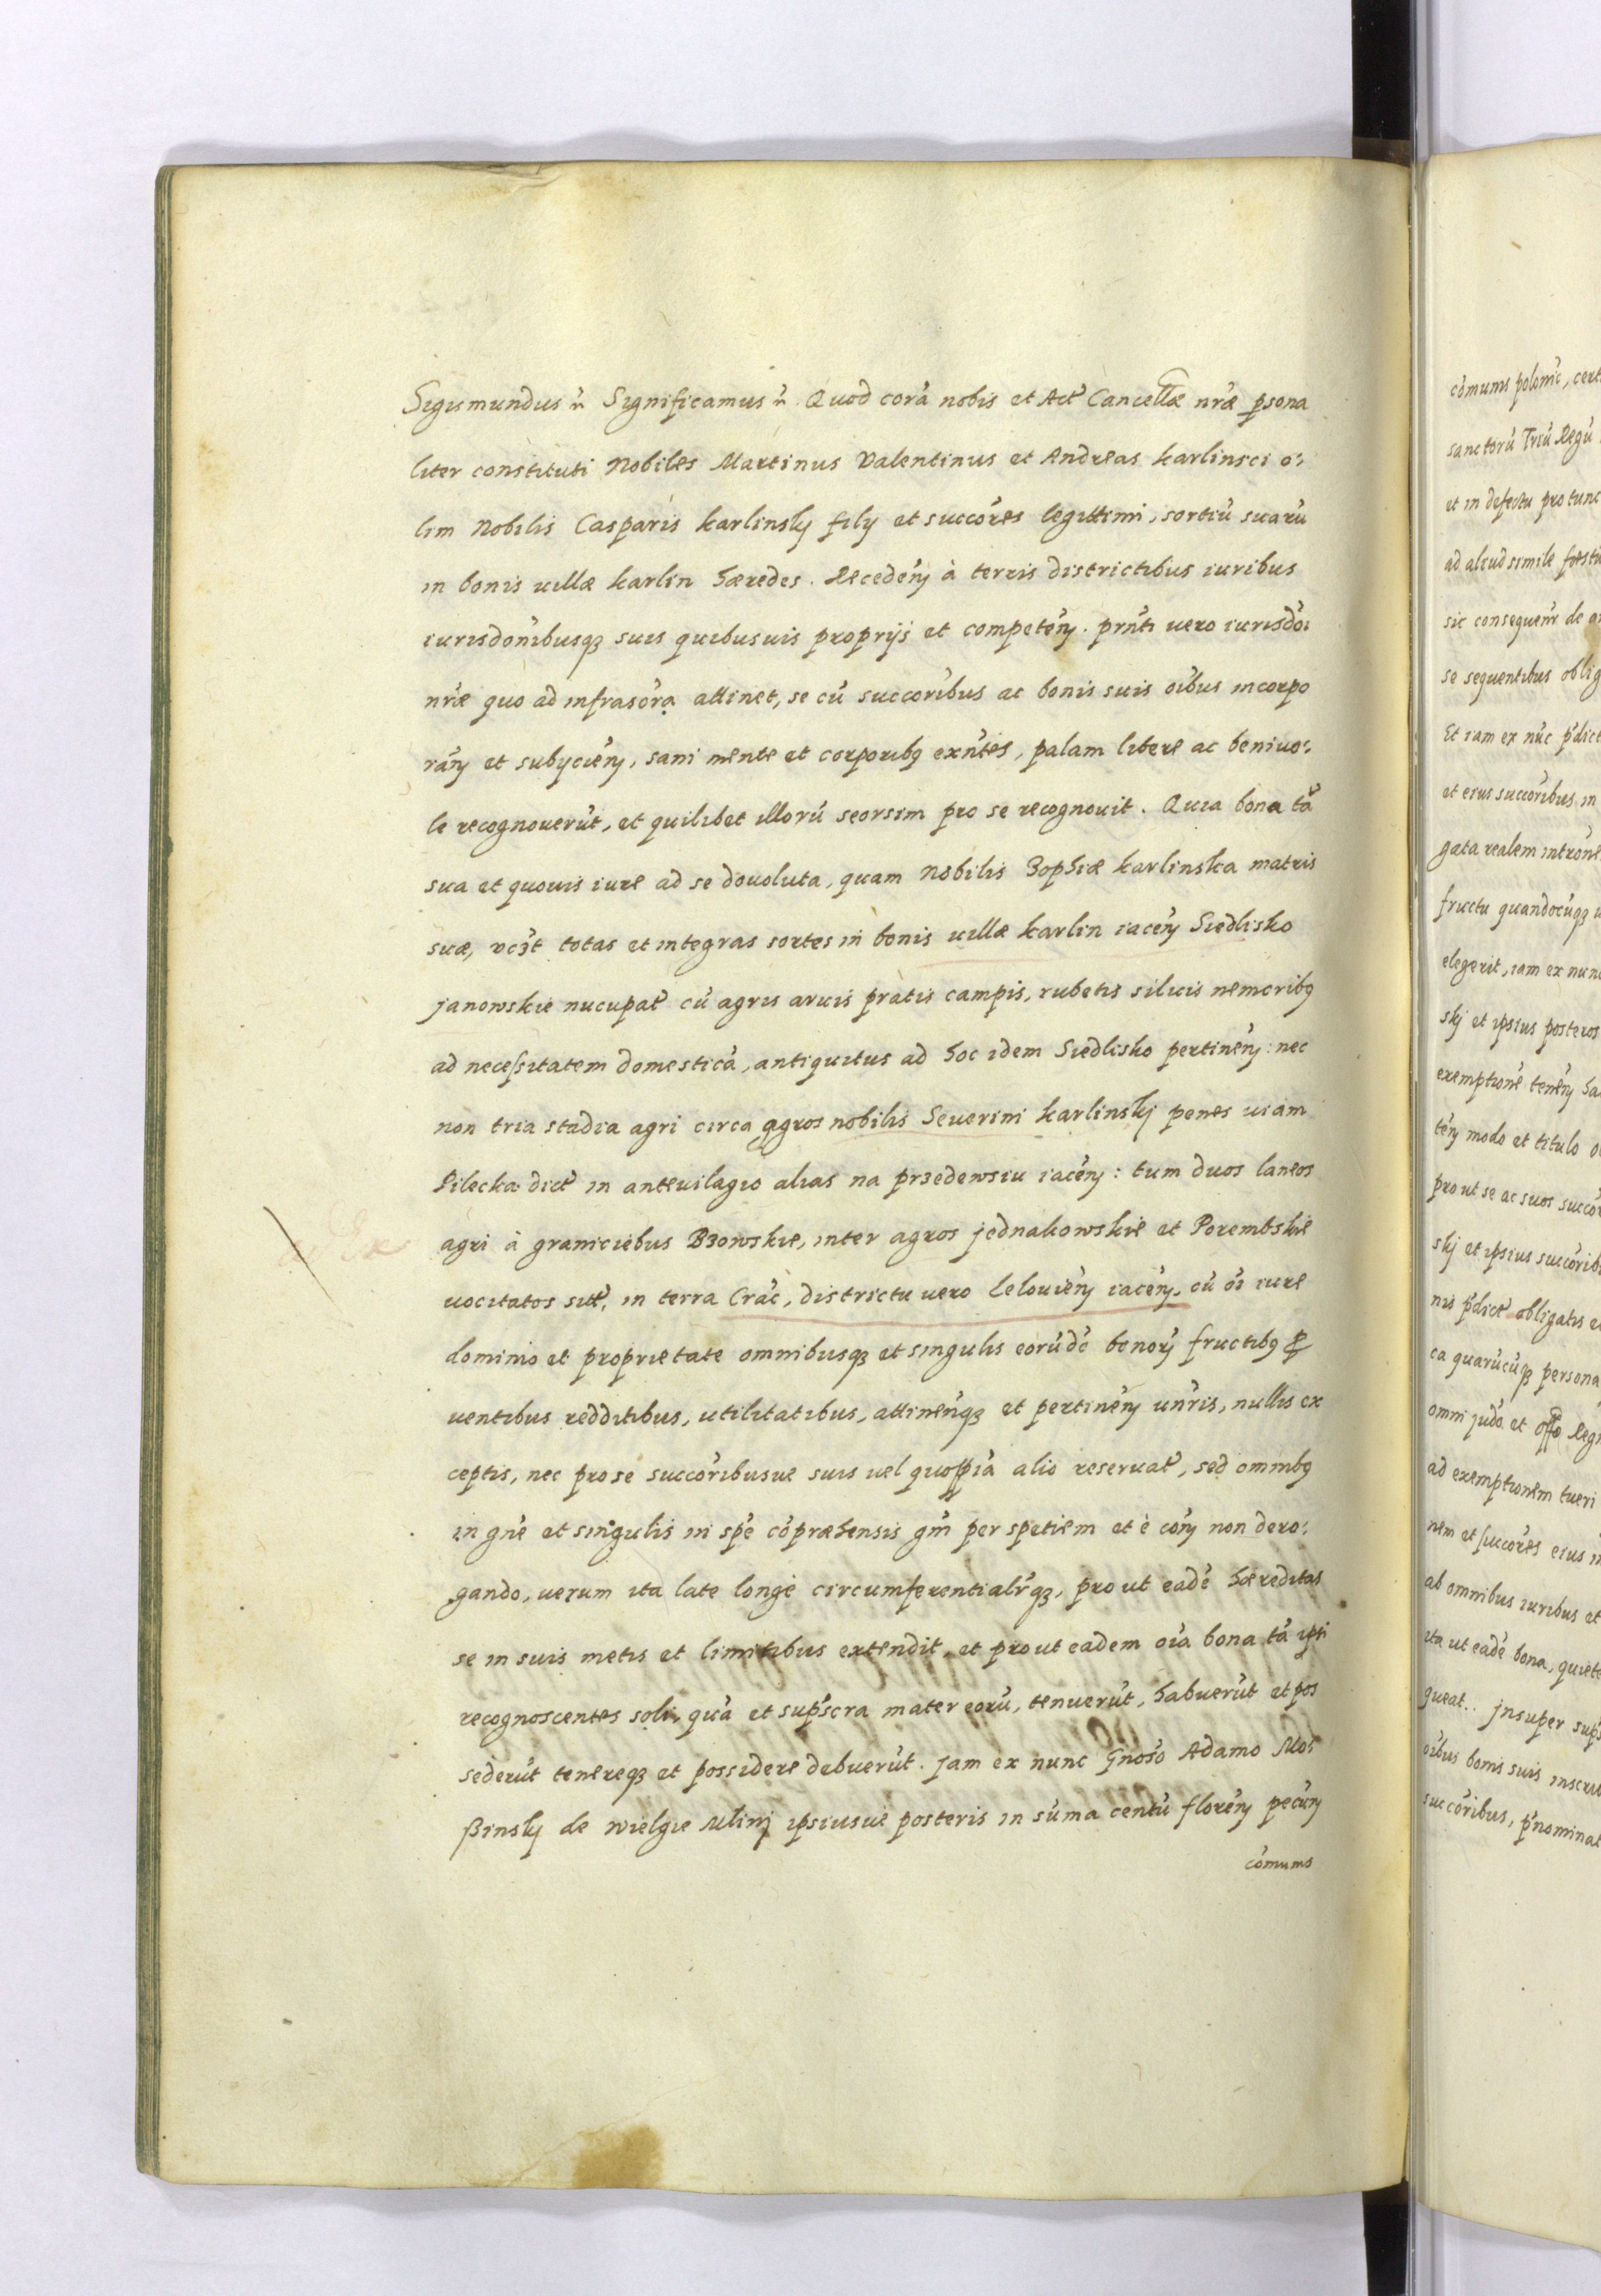 Sigismundus etc Significamus etc Quod corā nobis et Act Cancellæ nr̄æ psona
liter constituti Nobiles Martinus Valentinus et Andreas karlinsci o:
lim Nobilis Casparis karlinskj filij et succor̄es legittimi, sortiū suarū
in bonis uillæ karlin hæredes. Recedēn à terris districtibus iuribus
iurisdōnibusq3 suis quibusuis proprijs et competēn. prn̄ti uero iurisdōi
nr̄æ quo ad infrascr̄a attinet, se cū succor̄ibus ac bonis suis oībus incorpo
rān et subijciēn, sani mente et corporibq exn̄tes, palam libere ac beniuo:
le recognouerūt, et quilibet illorū seorsim pro se recognouit. Quia bona tā
sua et quouis iure ad se deuoluta, quam Nobilis Zophiæ karlinska matris
suæ, vc3t totas et integras sortes in bonis uillæ karlin iacēn Siedlisko
janowskie nucupat cū agris aruis pratis campis, rubetis siluis nemoribq
ad necessitatem domesticā, antiquitus ad hoc idem Siedlisko pertinēn: nec
non tria stadia agri circa agros nobilis Seuerini karlinskj penes uiam
Pilecka dict in anteuilagio alias na przedewsiu iacēn: tum duos laneos
agri à graniciebus Bzowskie, inter agros jednakowskie et Porembskie
uocitatos sitt, in terra Crāc, districtu uero Leloviēn iacēn, cū oī iure
dominio et proprietate omnibusq3 et singulis eorūdē bonorj fructibq p
uentibus redditibus, utilitatibus, attinenq3 et pertinēn un̄ris, nullis ex
ceptis, nec pro se succor̄ibusue suis uel quoppiā alio reseruat, sed omnibq
in gn̄e et singulis in spē cōpræhensis gn̄i per spetiem et è cōn non dero:
gando, uerum ita late longè circumferentialr̄q3, pro ut eadē hæreditas
se in suis metis et limitibus extendit, et pro ut eadem oīa bona tā ipsi
recognoscentes soli, quā et supscra mater eorū, tenuerūt, habuerūt et pos
sederūt tenereq3 et possidere debuerūt. Jam ex nunc Gnoso Adamo Mo:
ßinskj de Wielgie Mlinj ipsiusue posteris in sūma centū florēn pecūn
cōmunis
cōmunis polonic, cert
sanctorū Triū Regū
et in defectu pro tunc
ad aliud simile festū
sic consequenr̄ de a
se sequentibus oblig
Et iam ex nūc pdict
et eius succor̄ibus in
gata realem intrōn
fructu quandocūq3
elegerit, iam ex nunc
skj et ipsius posteros
exemptionē tenēn ha
tēn modo et titulo o
pro ut se ac suos succor
skj et ipsius succor̄ib
nis pdict obligatis e
ca quarūcūq3 persona
omni judō et offo Reg
ad exemptionem tueri
nem et succor̄es eius i
ab omnibus iuribus et
ita ut eadē bona, quiete
queat. Jnsuper sup
oībus bonis suis inscrip
succor̄ibus, pnominat